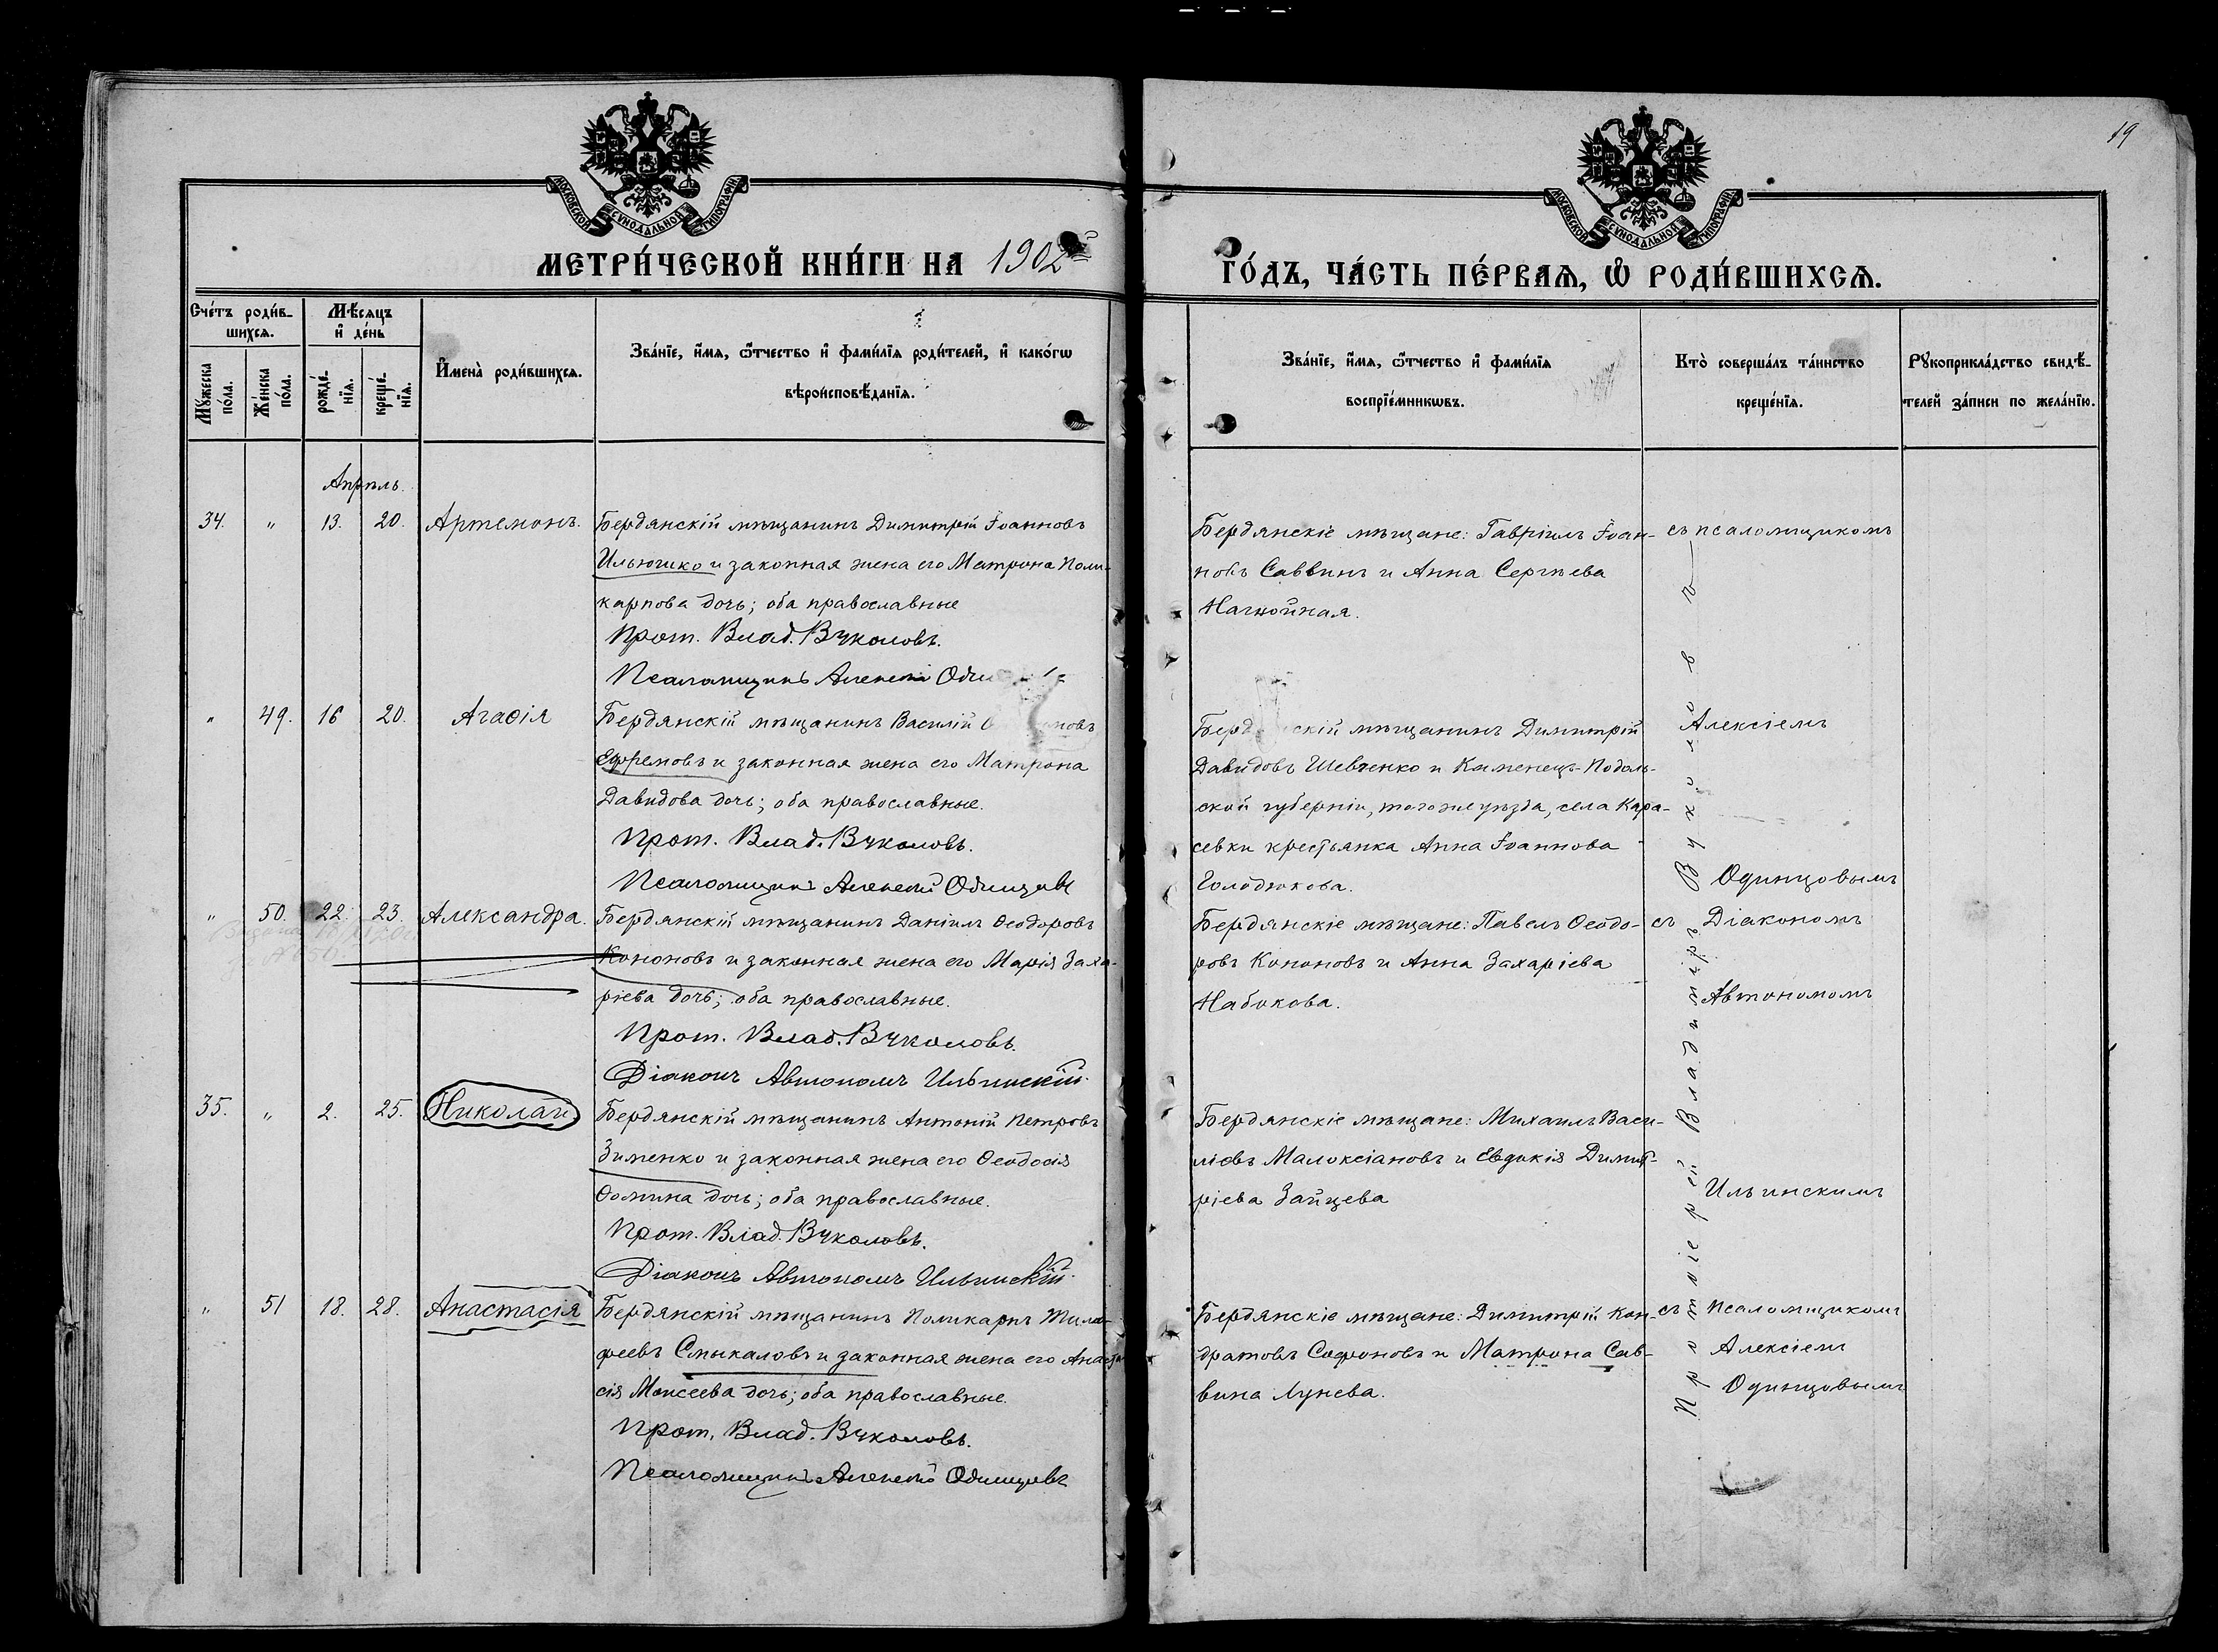 19
МОСКОВСКОЙ СѴНОДАЛЬНОЙ ТИПОГРАФІИ
МОСКОВСКОЙ СѴНОДАЛЬНОЙ ТИПОГРАФІИ
МЕТРИ́ЧЕСКОЙ КНИ́ГИ НА 1902й
ГО́ДЪ, ЧА́СТЬ ПЕ́РВАѦ, Ѡ РОДИ́ВШИХСѦ.
Сче́тъ роди́в-
шихсѧ.
Мꙋ́жеска по́ла.
Же́нска по́ла.
Мѣ́сѧцъ
и҆ де́нь
рожде́-
нїѧ.
креще́-
нїѧ.
И҆мена̀ роди́вшихсѧ.
Зва́нїе, и҆́мѧ, ѻ҆́тчество и҆ фами́лїѧ роди́телей, и҆ како́гѡ
вѣроисповѣ́данїѧ.
Зва́нїе, и҆́мѧ, ѻ҆́тчество и҆ фами́лїѧ
воспрїе́мникѡвъ.
Кто̀ соверша́лъ та́инство
креще́нїѧ.
Рꙋкоприкла́дство свидѣ́-
телей за́писи по жела́нїю.
Апрѣль.
34. " 13. 20. Артемонъ. Бердянскій мѣщанинъ Димитрій Іоанновъ
Ильюшко и законная жена его Матрона Поли-
карпова дочь; оба православные
Прот. Влад. Вуколовъ.
Псаломщикъ Алексій
Бердянскіе мѣщане: Гавріилъ Іоан-
новъ Саввинъ и Анна Сергѣева
съ псаломщикомъ
" 49. 16 20. Агаѳія Бердянскій мѣщанинъ Василій
Ефремовъ и законная жена его Матрона
Давидова дочь; оба православные.
Прот. Влад. Вуколовъ.
Псаломщикъ Алексій Одинцовъ
мѣщанинъ Димитрій
Давидовъ Шевченко и Каменецъ-Подоль-
ской губерніи, того же уѣзда, села Кара-
севки крестьянка Анна Іоаннова
Голодюкова.
Алексіемъ
Одинцовымъ
" 50. 22. 23. Александра. Бердянскій мѣщанинъ Даніилъ Ѳеодоровъ
Кононовъ и законная жена его Марія Заха-
ріева дочь; оба православные.
Прот. Влад. Вуколовъ.
Діаконъ Автономъ Ильинскій.
Бердянскіе мѣщане: Павелъ Ѳеодо-
ровъ Кононовъ и Анна Захаріева
Набокова.
съ Діакономъ
Автономомъ
35. " 2. 25. Николай Бердянскій мѣщанинъ Антоній Петровъ
Зименко и законная жена его Ѳеодосія
Ѳомина дочь; оба православные.
Прот. Влад. Вуколовъ.
Діаконъ Автономъ Ильинскій.
Бердянскіе мѣщане: Михаилъ Васи-
ліевъ Малоксіановъ и Евдокія Димит-
ріева Зайцева
Ильинскимъ
" 51 18. 28. Анастасія Бердянскій мѣщанинъ Поликарпъ Тимо-
феевъ Смыкаловъ и законная жена его Анаста-
сія Моисеева дочь; оба православные.
Прот. Влад. Вуколовъ.
Псаломщикъ Алексій Одинцовъ
Бердянскіе мѣщане: Димитрій Кон-
дратовъ Софоновъ и Матрона Сав-
вина Лунева.
съ псаломщикомъ
Алексіемъ
Одинцовымъ
Протоіерей Владиміръ Вуколовъ